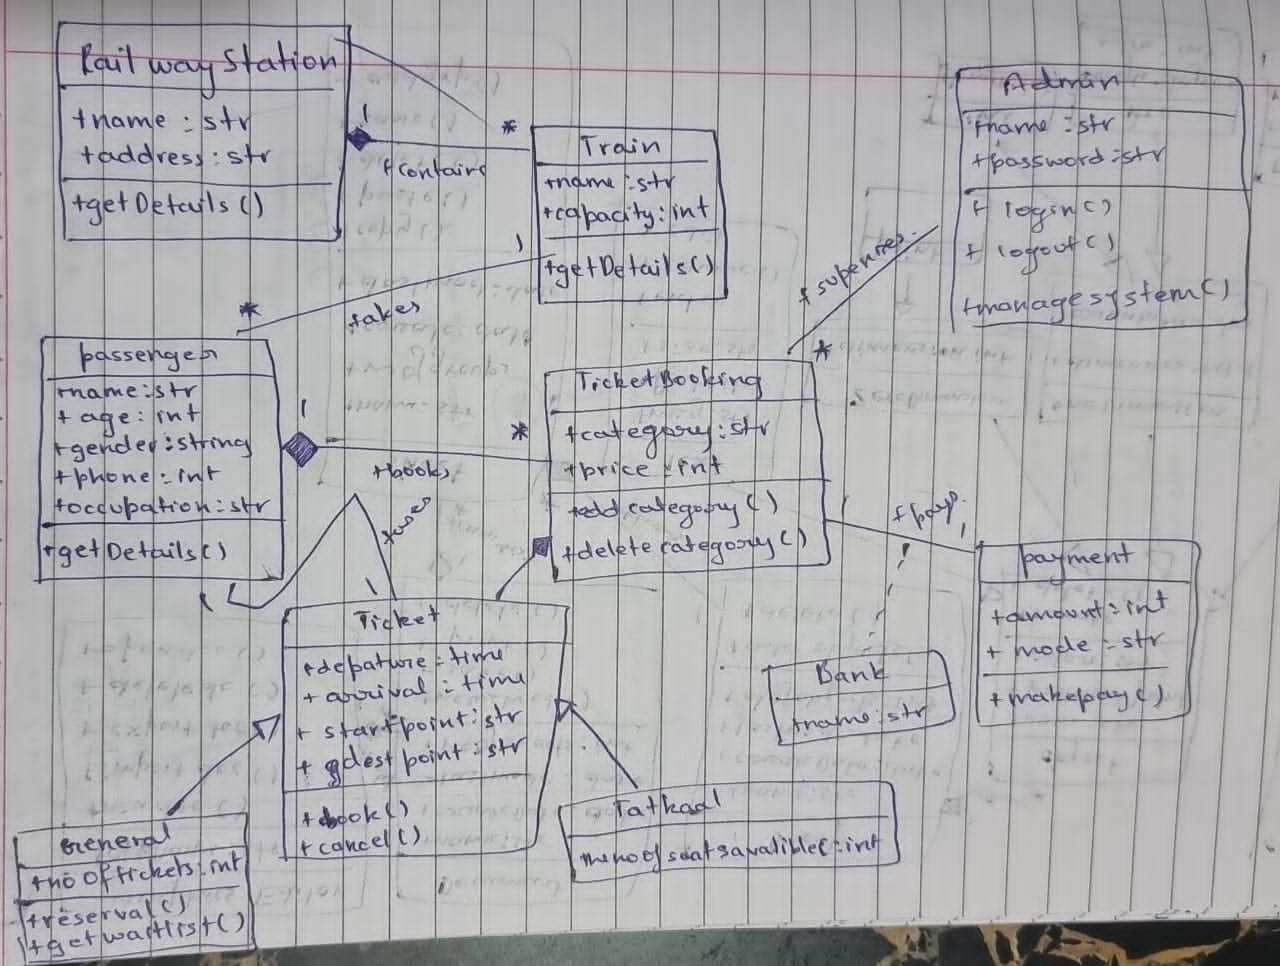 Railway Station
+name : str
+address : str
+getDetails ()
1
*
+contains
Train
+name : str
+capacity : int
+getDetails ()
Admin
+name : str
+password : str
+ login ()
+ logout ()
+manage system ()
1
*
takes
passenger
+name : str
+ age : int
+gender : string
+phone : int
+occupation : str
+getDetails ()
1
*
+books
+uses
1
1
*
Ticket Booking
+category : str
+price : int
+add category ()
+delete category ()
1
+pays
1
payment
+amount : int
+ mode : str
+makepay ()
Bank
+name : str
Ticket
+depature : time
+ arrival : time
+ startpoint : str
+ dest point : str
+ book ()
+ cancel ()
General
+no of tickets : int
+reserval ()
+getwaitlist ()
Tatkaal